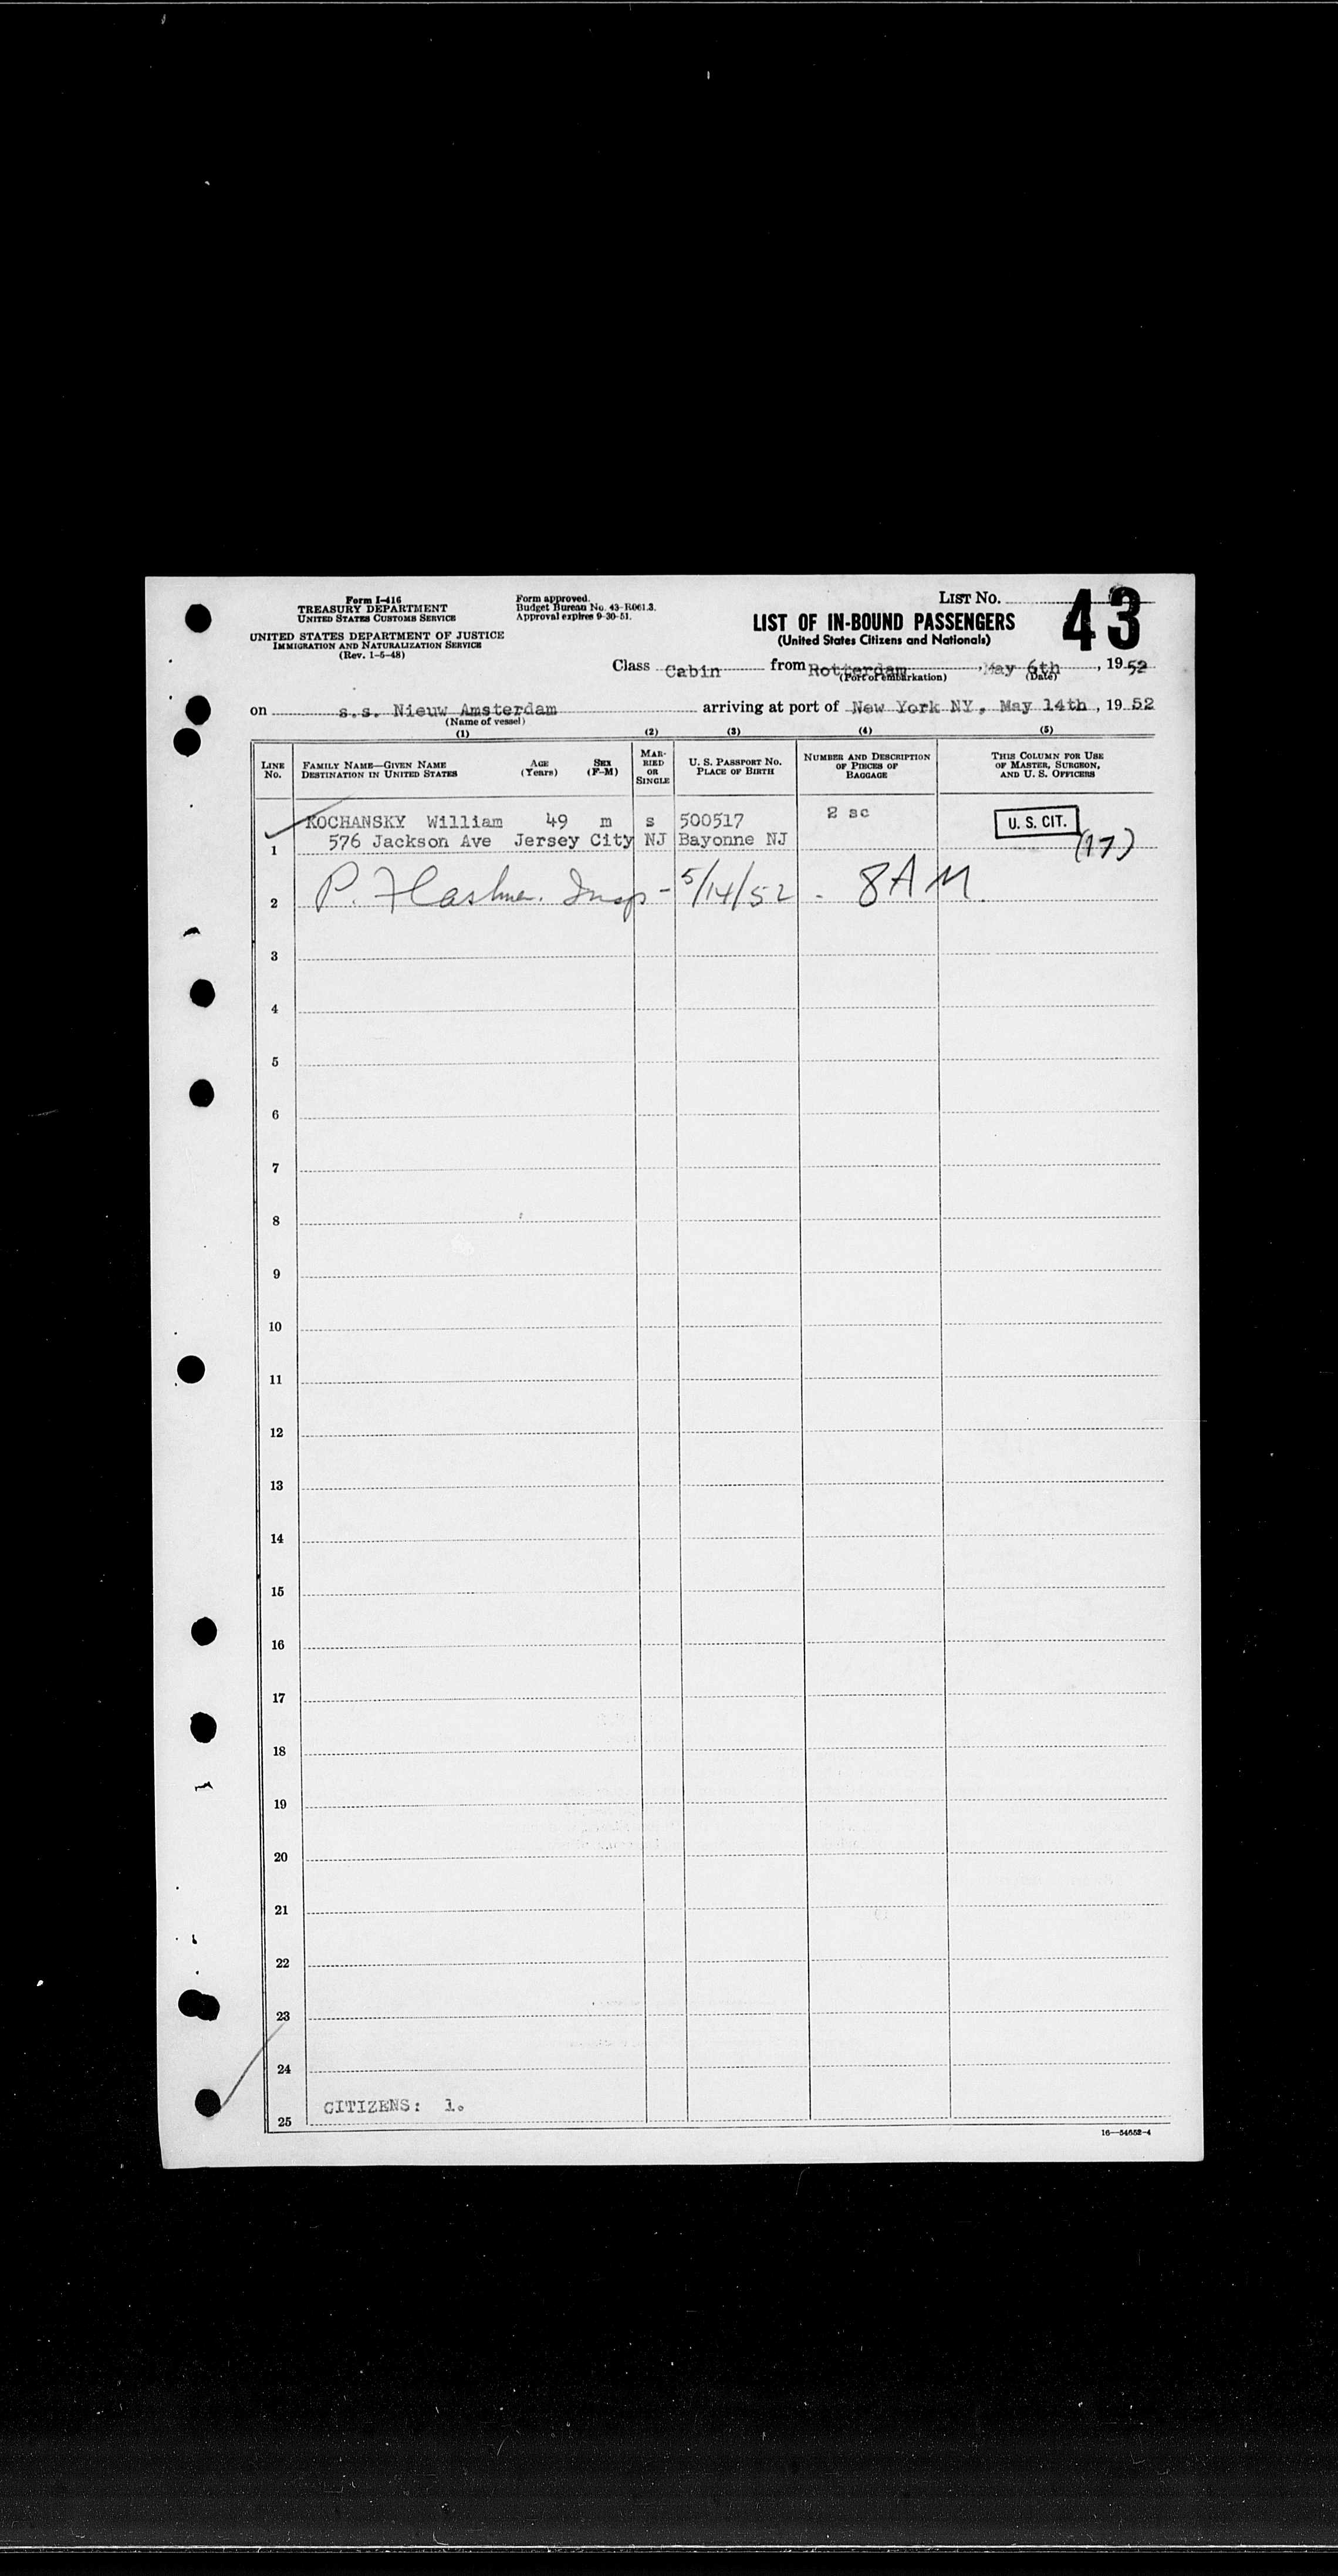 Form I-416
TREASURY DEPARTMENT
UNITED STATES CUSTOMS SERVICE
UNITED STATES DEPARTMENT OF JUSTICE
IMMIGRATION AND NATURALIZATION SERVICE
(Rev. 1-5-48)
Form approved.
Budget Bureau No. 43-R061.3.
Approval expires 9-30-51.
LIST NO. 43
LIST OF IN-BOUND PASSENGERS
(United States Citizens and Nationals)
Class Cabin from Rotterdam, May 6th, 1952
(Port of embarkation) (Date)
on s.s. Nieuw Amsterdam arriving at port of New York NY, May 14th, 1952
(Name of vessel)
(1) (2) (3) (4) (5)
LINE NO.
FAMILY NAME—GIVEN NAME
DESTINATION IN UNITED STATES
AGE (Years)
SEX (F-M)
MARRIED OR SINGLE
U. S. PASSPORT NO.
PLACE OF BIRTH
NUMBER AND DESCRIPTION OF PIECES OF BAGGAGE
THIS COLUMN FOR USE OF MASTER, SURGEON, AND U. S. OFFICERS
KOCHANSKY William 49 m s 500517 2 sc U. S. CIT.
1 576 Jackson Ave Jersey City NJ Bayonne NJ (17)
2 P. Insp - 5/14/52 - 8 AM
3
4
5
6
7
8
9
10
11
12
13
14
15
16
17
18
19
20
21
22
23
24
25 CITIZENS: 1.
16—54652-4